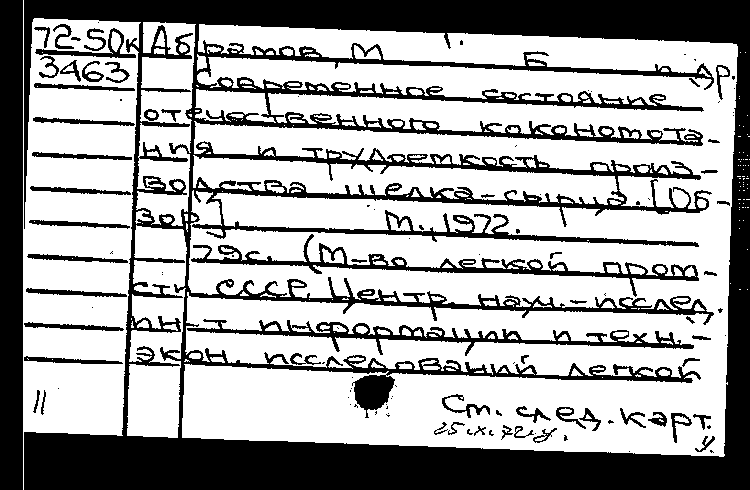 72-50к Абрамов, М. Б. и др.
3463 Современное состояние
отечественного кокономота-
ния и трудоемкость произ-
водства шелка-сырца. [Об-
зор]. М., 1972.
79с. (М-во легкой пром-
сти СССР. Центр. науч.-исслед.
ин-т информации и техн.-
экон. исследований легкой
11 См. след. карт.
25.X.72 г.